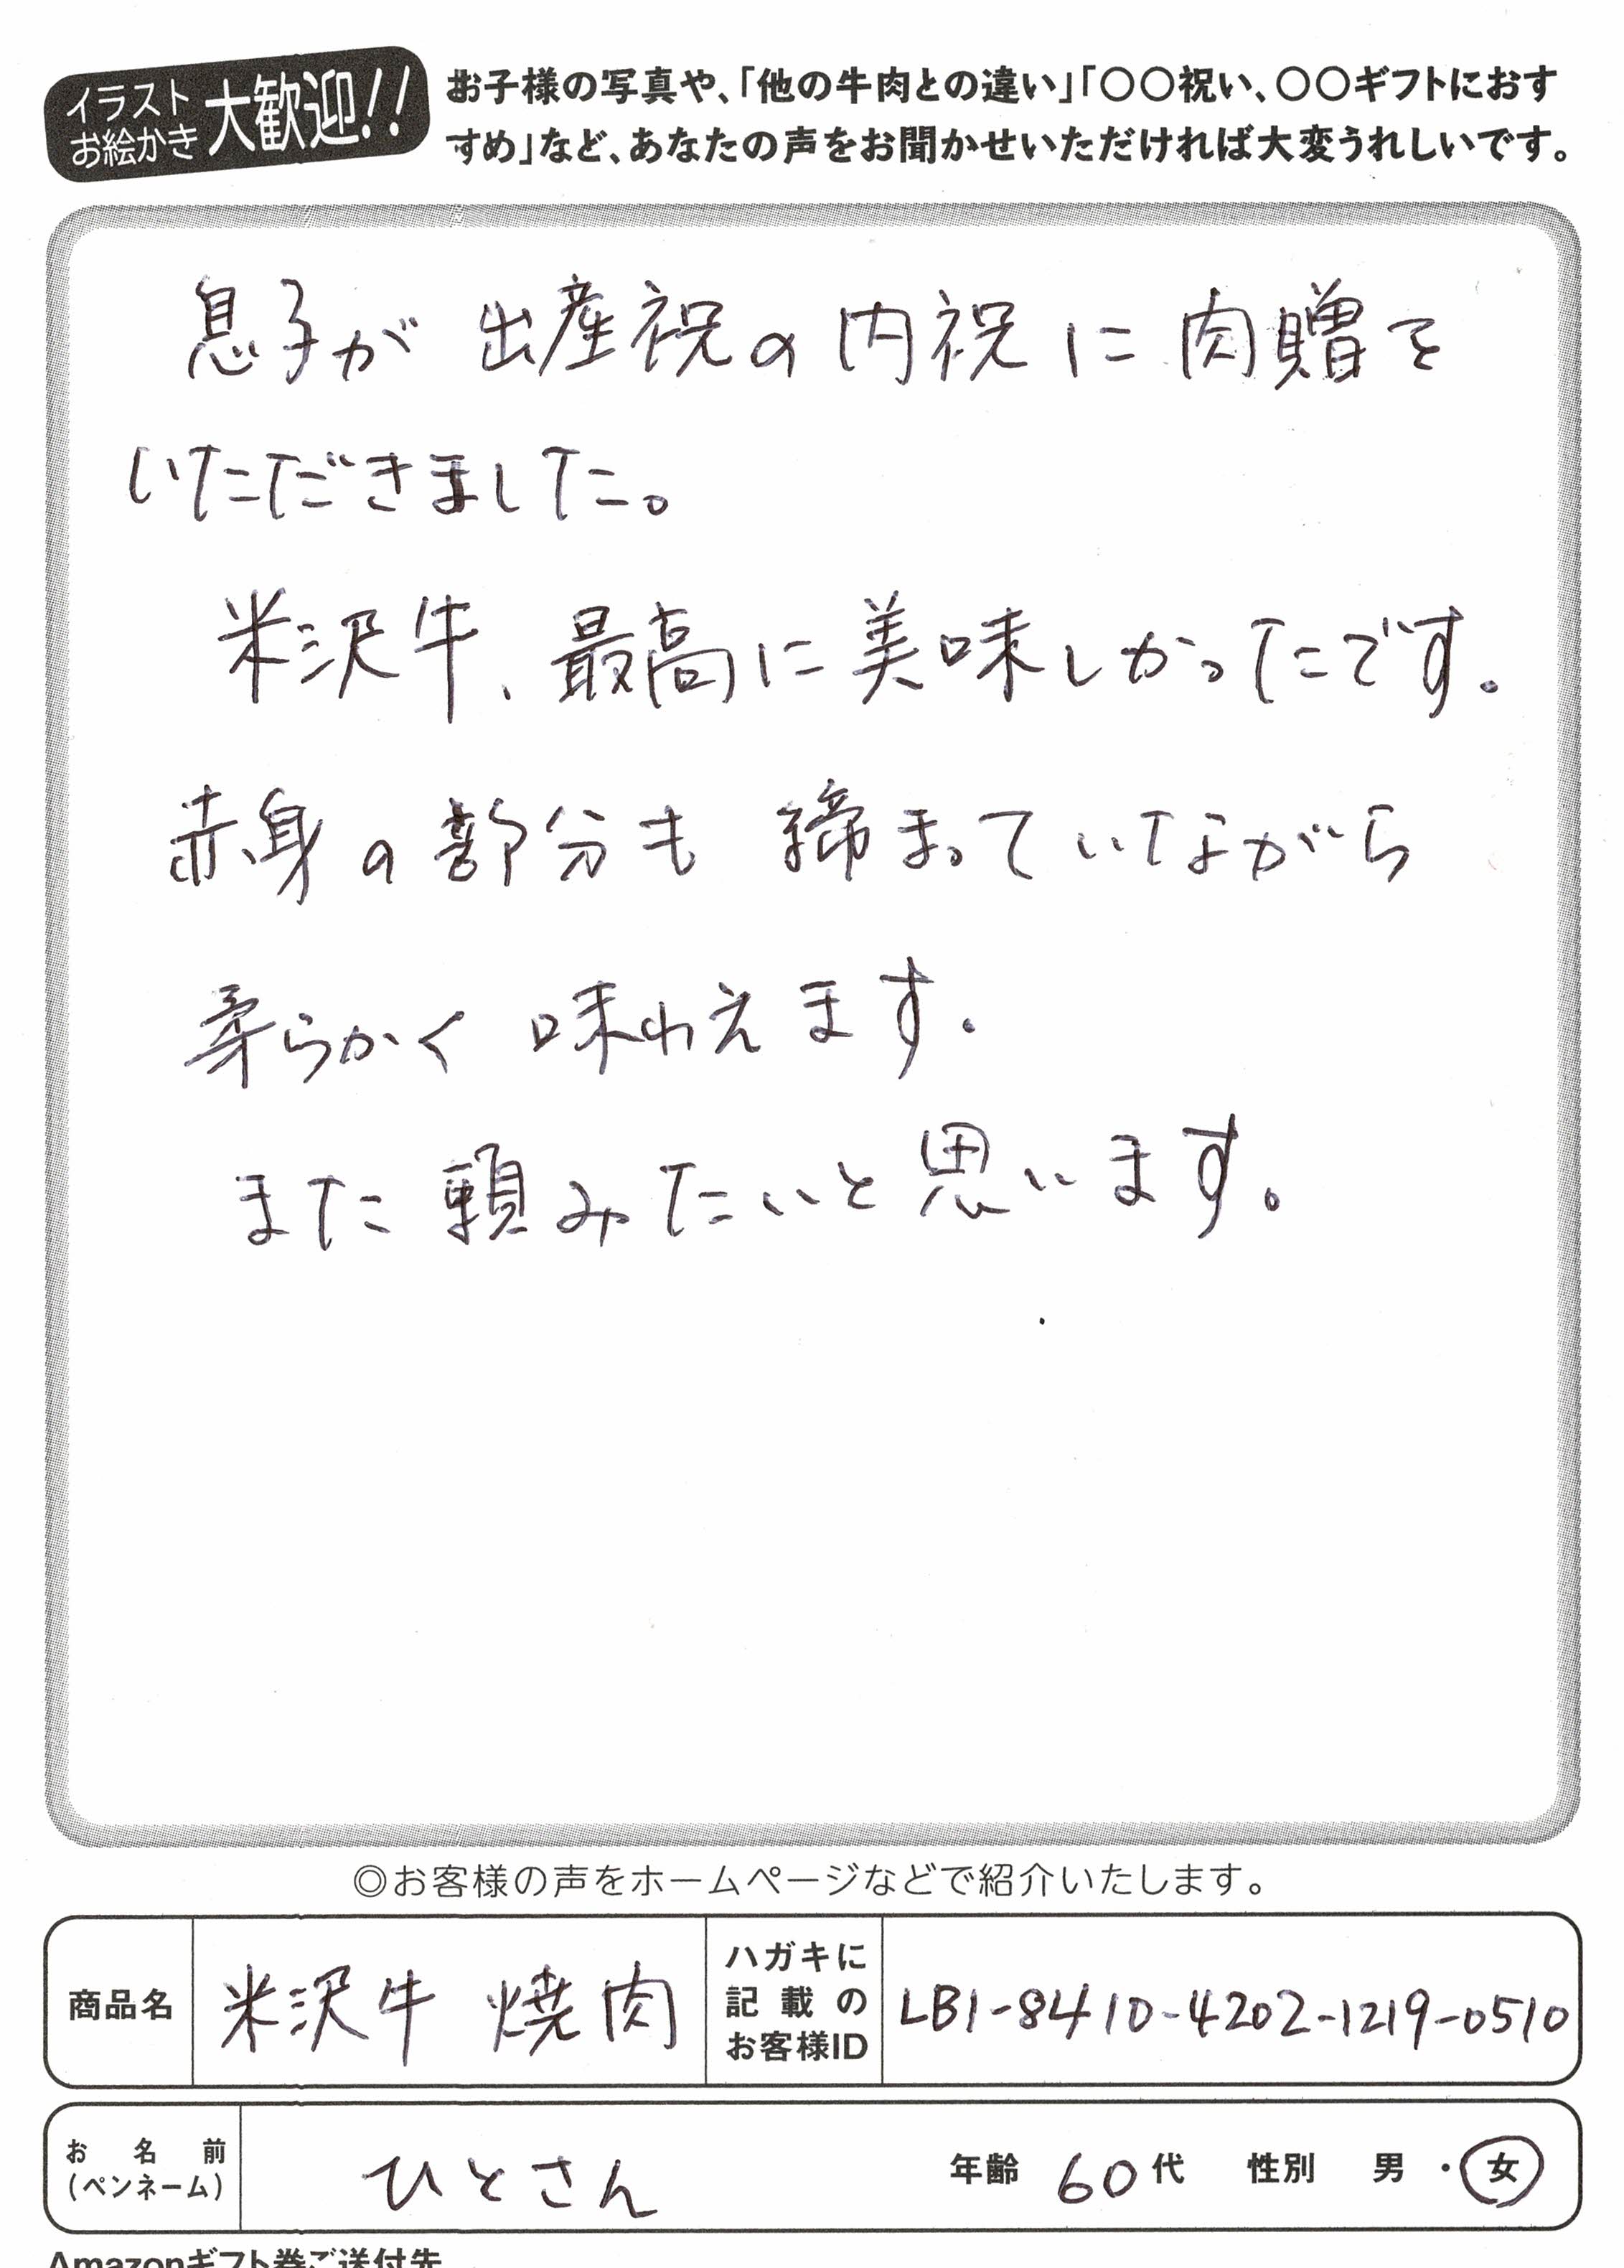 イラスト
お絵かき
大歓迎!!
お子様の写真や、「他の牛肉との違い」「〇〇祝い、〇〇ギフトにおす
すめ」など、あなたの声をお聞かせいただければ大変うれしいです。
息子が 出産祝の内祝に肉贈を
いただきました。
米沢牛、最高に美味しかったです。
赤身の部分も 締まっていながら
柔らかく 味わえます。
また頼みたいと思います。
◎お客様の声をホームページなどで紹介いたします。
商品名
米沢牛 焼肉
ハガキに
記載の
お客様ID
LB1-8410-4202-1219-0510
お名前
(ペンネーム)
ひとさん
年齢 60代 性別 男・女
Amazonギフト券ご送付先